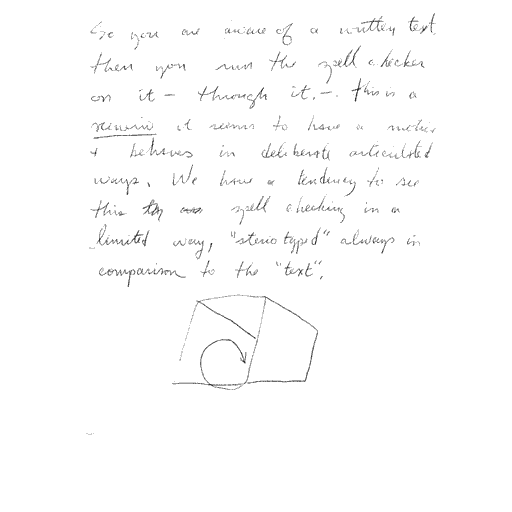 So you are aware of a written text
then you run the spell checker
on it — through it. —. this is a
it seems to have a
+ behaves in deliberate articulated
ways. We have a tendency to see
this spell checking in a
limited way, "steriotyped" always in
comparison to the "text".